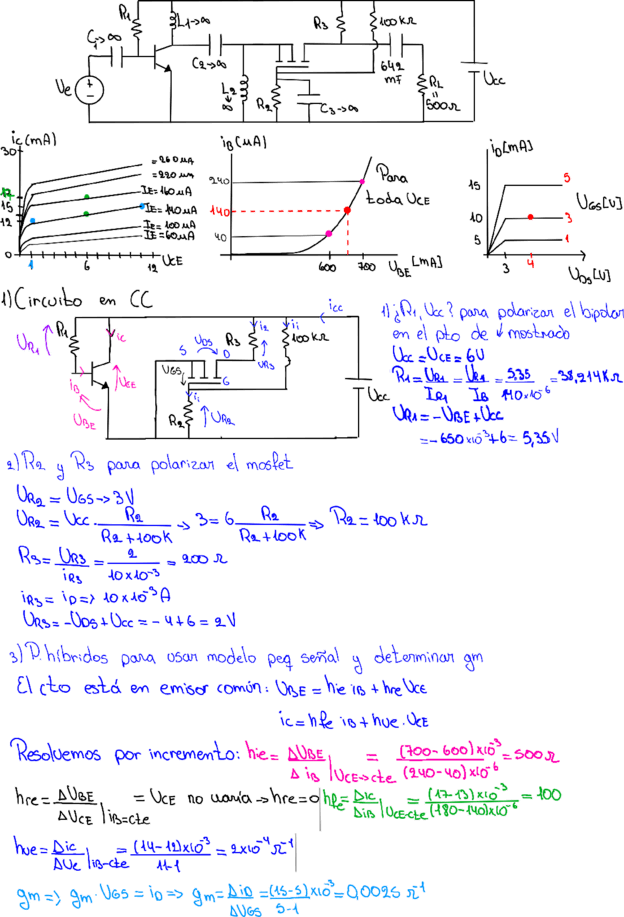 R1
L1→∞
C1→∞
C2→∞
R3
100KΩ
642
mF
RL
=
500Ω
Ucc
Ue
L2
→
∞
R2
C3→∞
ic(mA)
30
17
15
12
0
1
6
12
UCE
=260μA
=220μA
IE=160μA
IE=140μA
IE=100μA
IE=60μA
iB(μA)
240
140
40
600
700
UBE [mA]
Para
toda UCE
iD[mA]
15
10
5
3
4
5
3
1
UGS[V]
UDS[V]
1) Circuito en CC
UR1
R1
ic
iB
UBE
UCE
S
UDS
D
UGS
G
i1
R2
UR2
R3
i2
UR3
i1
100KΩ
icc
Ucc
1) ¿R1, Ucc? para polarizar el bipolar
en el pto de ↓ mostrado
Ucc = UCE = 6V
R1 = UR1/IR1 = UR1/IB = 5,35/140×10⁻⁶ = 38,214KΩ
UR1 = -UBE + Ucc
= -650×10⁻³ + 6 = 5,35V
2) R2 y R3 para polarizar el mosfet
UR2 = UGS → 3V
UR2 = Ucc · R2/R2+100K → 3 = 6 R2/R2+100K ⇒ R2 = 100KΩ
R3 = UR3/iR3 = 2/10×10⁻³ = 200Ω
iR3 = iD ⇒ 10×10⁻³A
UR3 = -UDS + Ucc = -4+6 = 2V
3) P. híbridos para usar modelo peq señal y determinar gm
El cto está en emisor común: UBE = hie iB + hre UCE
ic = hfe iB + hoe · UCE
Resolvemos por incremento: hie = ΔUBE/ΔiB |UCE→cte = (700-600)×10⁻³/(240-40)×10⁻⁶ = 500Ω
hre = ΔUBE/ΔUCE |iB=cte = UCE no varía → hre=0 | hfe = Δic/ΔiB |UCE-cte = (17-13)×10⁻³/(180-140)×10⁻⁶ = 100
hoe = Δic/ΔUc |iB-cte = (14-12)×10⁻³/11-1 = 2×10⁻⁴ Ω⁻¹
gm ⇒ gm · UGS = iD ⇒ gm = ΔiD/ΔUGS = (15-5)×10⁻³/5-1 = 0,0025 Ω⁻¹